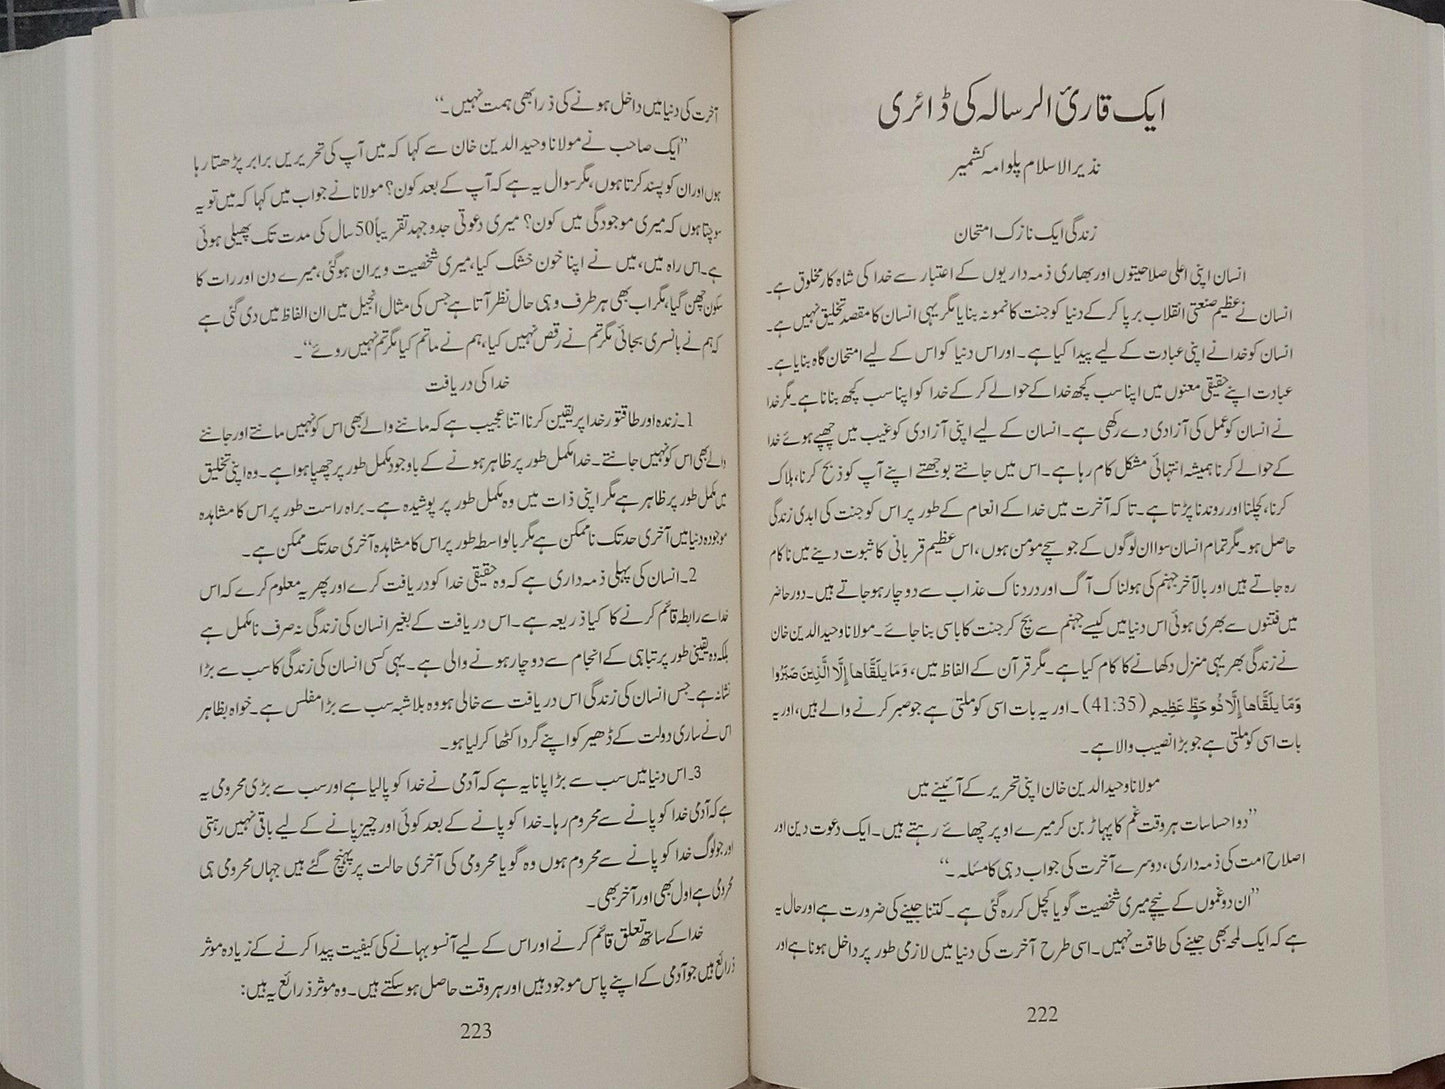 ایک قاریٔ الرسالہ کی ڈائری
نذیر الاسلام پلوامہ کشمیر
زندگی ایک نازک امتحان
انسان اپنی اعلیٰ صلاحیتوں اور بھاری ذمہ داریوں کے اعتبار سے خدا کی شاہ کار مخلوق ہے۔
انسان نے عظیم صنعتی انقلاب برپا کر کے دنیا کو جنت کا نمونہ بنایا مگر یہی انسان کا مقصد تخلیق نہیں ہے۔
انسان کو خدا نے اپنی عبادت کے لیے پیدا کیا ہے۔ اور اس دنیا کو اس کے لیے امتحان گاہ بنایا ہے۔
عبادت اپنے حقیقی معنوں میں اپنا سب کچھ خدا کے حوالے کر کے خدا کو اپنا سب کچھ بنانا ہے۔ مگر خدا
نے انسان کو عمل کی آزادی دے رکھی ہے۔ انسان کے لیے اپنی آزادی کو غیب میں چھپے ہوئے خدا
کے حوالے کرنا ہمیشہ انتہائی مشکل کام رہا ہے۔ اس میں جانتے بوجھتے اپنے آپ کو ذبح کرنا، ہلاک
کرنا، کچلنا اور روندنا پڑتا ہے۔ تاکہ آخرت میں خدا کے انعام کے طور پر اس کو جنت کی ابدی زندگی
حاصل ہو۔ مگر تمام انسان سوا ان لوگوں کے جو سچے مومن ہوں، اس عظیم قربانی کا ثبوت دینے میں ناکام
رہ جاتے ہیں اور بالآخر جہنم کی ہولناک آگ اور دردناک عذاب سے دوچار ہو جاتے ہیں۔ دور حاضر
میں فتنوں سے بھری ہوئی اس دنیا میں کیسے جہنم سے بچ کر جنت کا باسی بنا جائے۔ مولانا وحید الدین خان
نے زندگی بھر یہی منزل دکھانے کا کام کیا ہے۔ مگر قرآن کے الفاظ میں، وَمَا يُلَقَّاها إِلَّا الَّذِينَ صَبَرُوا
وَمَا يُلَقَّاها إِلَّا ذُو حَظٍّ عَظِيمٍ (41:35)۔ اور یہ بات اسی کو ملتی ہے جو صبر کرنے والے ہیں، اور یہ
بات اسی کو ملتی ہے جو بڑا نصیب والا ہے۔
مولانا وحید الدین خان اپنی تحریر کے آئینے میں
”دو احساسات ہر وقت غم کا پہاڑ بن کر میرے اوپر چھائے رہتے ہیں۔ ایک دعوت دین اور
اصلاح امت کی ذمہ داری، دوسرے آخرت کی جواب دہی کا مسئلہ۔“
”ان دو غموں کے نیچے میری شخصیت گویا کچل کر رہ گئی ہے۔ کتنا جینے کی ضرورت ہے اور حال یہ
ہے کہ ایک لمحہ بھی جینے کی طاقت نہیں۔ اسی طرح آخرت کی دنیا میں لازمی طور پر داخل ہونا ہے اور
222
آخرت کی دنیا میں داخل ہونے کی ذرا بھی ہمت نہیں۔“
”ایک صاحب نے مولانا وحید الدین خان سے کہا کہ میں آپ کی تحریریں برابر پڑھتا رہا
ہوں اور ان کو پسند کرتا ہوں، مگر سوال یہ ہے کہ آپ کے بعد کون؟ مولانا نے جواب میں کہا کہ میں تو یہ
سوچتا ہوں کہ میری موجودگی میں کون؟ میری دعوتی جدوجہد تقریباً 50 سال کی مدت تک پھیلی ہوئی
ہے۔ اس راہ میں، میں نے اپنا خون خشک کیا، میری شخصیت ویران ہو گئی، میرے دن اور رات کا
سکون چھن گیا، مگر اب بھی ہر طرف وہی حال نظر آتا ہے جس کی مثال انجیل میں ان الفاظ میں دی گئی ہے
کہ ہم نے بانسری بجائی مگر تم نے رقص نہیں کیا، ہم نے ماتم کیا مگر تم نہیں روئے“۔
خدا کی دریافت
1۔ زندہ اور طاقتور خدا پر یقین کرنا اتنا عجیب ہے کہ ماننے والے بھی اس کو نہیں مانتے اور جاننے
والے بھی اس کو نہیں جانتے۔ خدا مکمل طور پر ظاہر ہونے کے باوجود مکمل طور پر چھپا ہوا ہے۔ وہ اپنی تخلیق
میں مکمل طور پر ظاہر ہے مگر اپنی ذات میں وہ مکمل طور پر پوشیدہ ہے۔ براہ راست طور پر اس کا مشاہدہ
موجودہ دنیا میں آخری حد تک ناممکن ہے مگر بالواسطہ طور پر اس کا مشاہدہ آخری حد تک ممکن ہے۔
2۔ انسان کی پہلی ذمہ داری ہے کہ وہ حقیقی خدا کو دریافت کرے اور پھر یہ معلوم کرے کہ اس
خدا سے رابطہ قائم کرنے کا کیا ذریعہ ہے۔ اس دریافت کے بغیر انسان کی زندگی نہ صرف نامکمل ہے
بلکہ وہ یقینی طور پر تباہی کے انجام سے دوچار ہونے والی ہے۔ یہی کسی انسان کی زندگی کا سب سے بڑا
نشانہ ہے۔ جس انسان کی زندگی اس دریافت سے خالی ہو وہ بلاشبہ سب سے بڑا مفلس ہے۔ خواہ بظاہر
اس نے ساری دولت کے ڈھیر کو اپنے گرد اکٹھا کر لیا ہو۔
3۔ اس دنیا میں سب سے بڑا پانا یہ ہے کہ آدمی نے خدا کو پا لیا ہے اور سب سے بڑی محرومی یہ
ہے کہ آدمی خدا کو پانے سے محروم رہا۔ خدا کو پانے کے بعد کوئی اور چیز پانے کے لیے باقی نہیں رہتی
اور جو لوگ خدا کو پانے سے محروم ہوں وہ گویا محرومی کی آخری حالت پر پہنچ گئے ہیں جہاں محرومی ہی
محرومی ہے اول بھی اور آخر بھی۔
خدا کے ساتھ تعلق قائم کرنے اور اس کے لیے آنسو بہانے کی کیفیت پیدا کرنے کے زیادہ موثر
ذرائع ہیں جو آدمی کے اپنے پاس موجود ہیں اور ہر وقت حاصل ہو سکتے ہیں۔ وہ موثر ذرائع یہ ہیں:
223